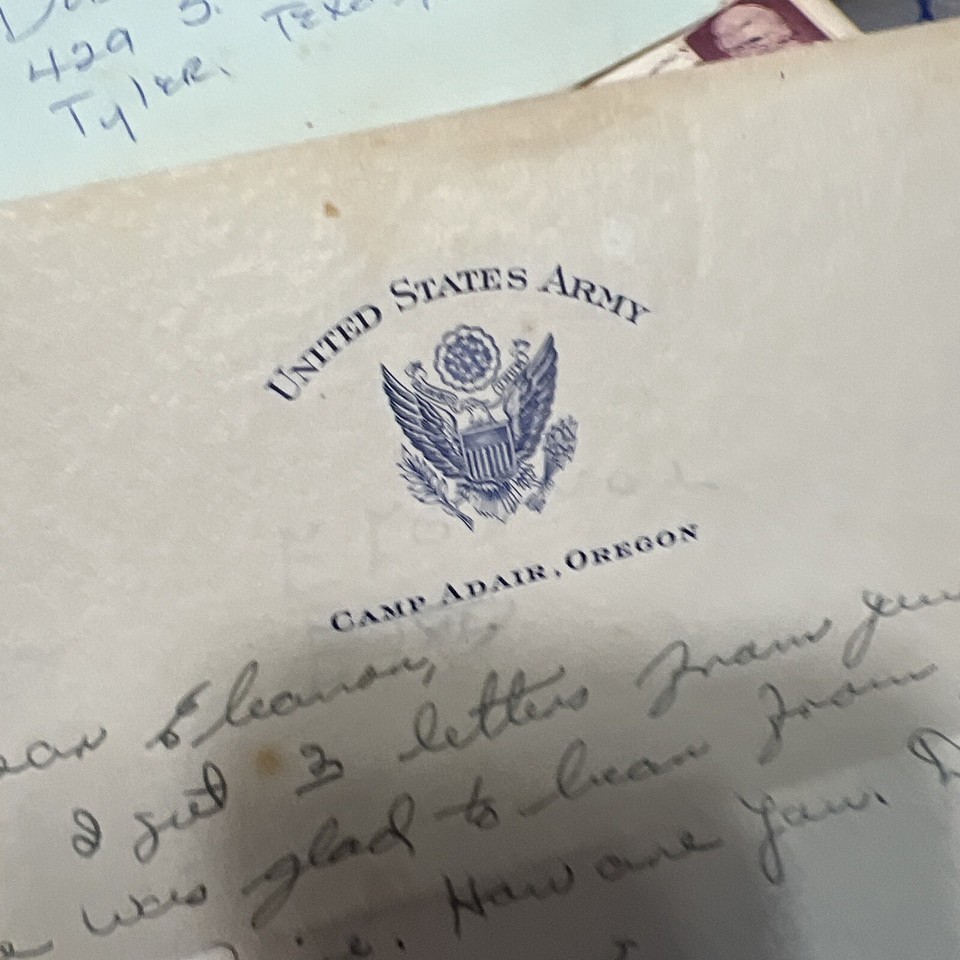 429 S.
Tyler, Texas
UNITED STATES ARMY
CAMP ADAIR, OREGON
ear Eleanor,
I got 3 letters from you
was glad to hear from
. How are you. D